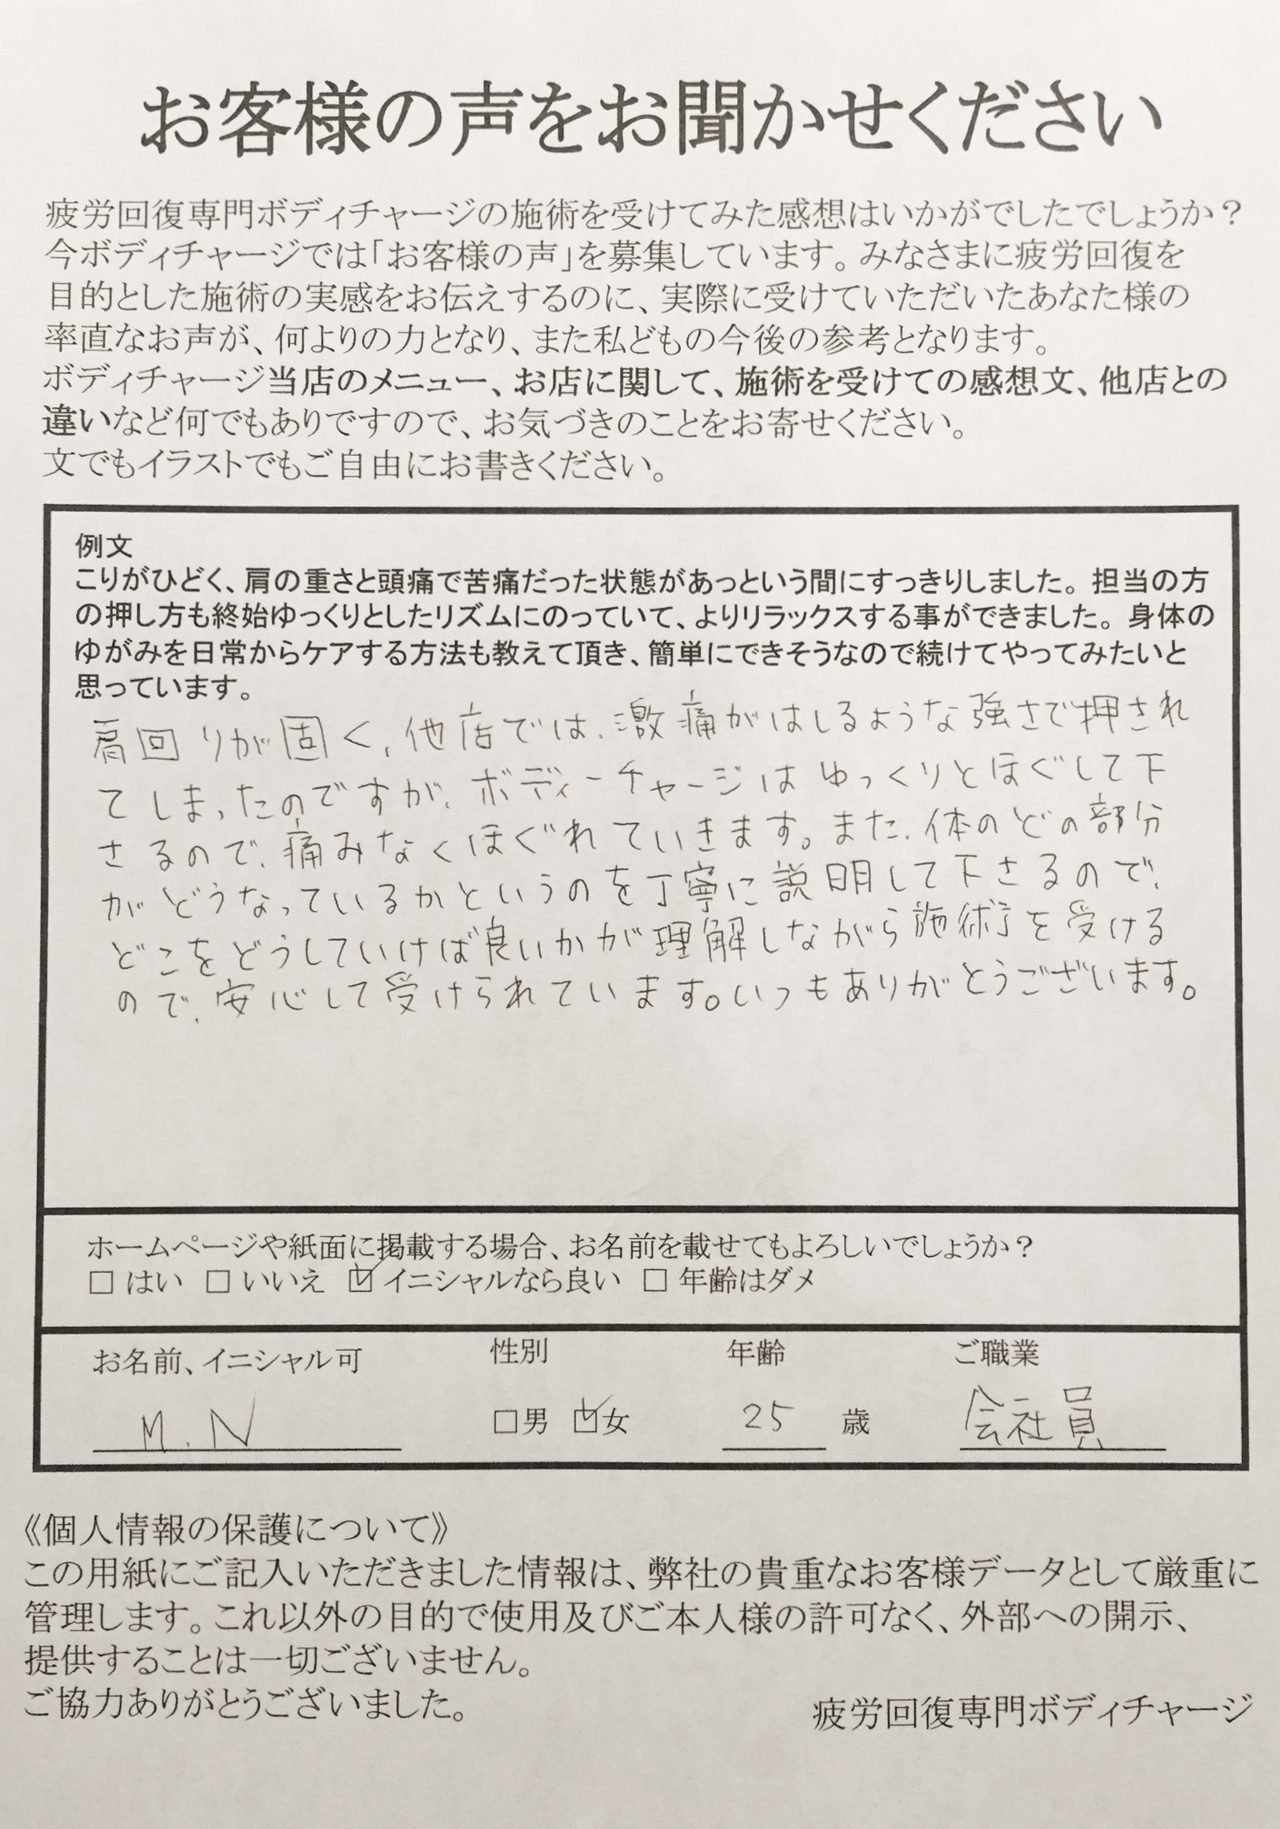 お客様の声をお聞かせください
疲労回復専門ボディチャージの施術を受けてみた感想はいかがでしたでしょうか？
今ボディチャージでは「お客様の声」を募集しています。みなさまに疲労回復を
目的とした施術の実感をお伝えするのに、実際に受けていただいたあなた様の
率直なお声が、何よりの力となり、また私どもの今後の参考となります。
ボディチャージ当店のメニュー、お店に関して、施術を受けての感想文、他店との
違いなど何でもありですので、お気づきのことをお寄せください。
文でもイラストでもご自由にお書きください。
例文
こりがひどく、肩の重さと頭痛で苦痛だった状態があっという間にすっきりしました。担当の方
の押し方も終始ゆっくりとしたリズムにのっていて、よりリラックスする事ができました。身体の
ゆがみを日常からケアする方法も教えて頂き、簡単にできそうなので続けてやってみたいと
思っています。
肩回りが固く、他店では、激痛がはしるような強さで押され
てしまったのですが、ボディーチャージはゆっくりとほぐして下
さるので、痛みなくほぐれていきます。また、体のどの部分
がどうなっているかというのを丁寧に説明して下さるので、
どこをどうしていけば良いかが理解しながら施術を受ける
ので、安心して受けられています。いつもありがとうございます。
ホームページや紙面に掲載する場合、お名前を載せてもよろしいでしょうか？
□ はい □ いいえ ☑ イニシャルなら良い □ 年齢はダメ
お名前、イニシャル可 性別 年齢 ご職業
M.N □男 ☑女 25 歳 会社員
《個人情報の保護について》
この用紙にご記入いただきました情報は、弊社の貴重なお客様データとして厳重に
管理します。これ以外の目的で使用及びご本人様の許可なく、外部への開示、
提供することは一切ございません。
ご協力ありがとうございました。
疲労回復専門ボディチャージ